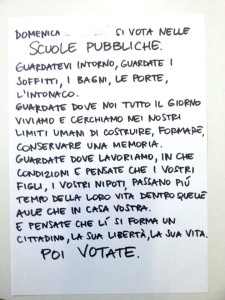 DOMENICA SI VOTA NELLE
SCUOLE PUBBLICHE.
GUARDATEVI INTORNO, GUARDATE I
SOFFITTI, I BAGNI, LE PORTE,
L'INTONACO.
GUARDATE DOVE NOI TUTTO IL GIORNO
VIVIAMO E CERCHIAMO NEI NOSTRI
LIMITI UMANI DI COSTRUIRE, FORMARE,
CONSERVARE UNA MEMORIA.
GUARDATE DOVE LAVORIAMO, IN CHE
CONDIZIONI E PENSATE CHE I VOSTRI
FIGLI, I VOSTRI NIPOTI, PASSANO PIÚ
TEMPO DELLA LORO VITA DENTRO QUELLE
AULE CHE IN CASA VOSTRA.
E PENSATE CHE LÍ SI FORMA UN
CITTADINO, LA SUA LIBERTÀ, LA SUA VITA.
POI VOTATE.